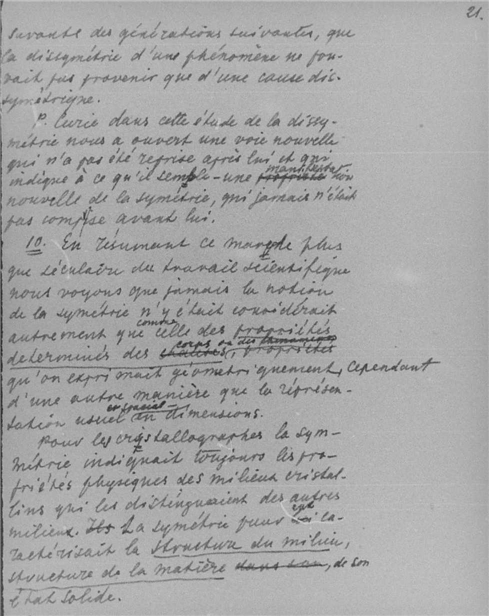 21.
savants des générations suivantes, que
la dissymétrie d'une phénomène ne pou-
vait pas provenir que d'une cause dis-
symétrique.
P. Curie dans cette étude de la dissy-
métrie nous a ouvert une voie nouvelle
qui n'a pas été reprise après lui et qui
indique à ce qu'il semble - une manifestation
nouvelle de la symétrie, qui jamais n'était
pas comprise avant lui.
10. En résumant ce marche plus
que séculaire du travail scientifique
nous voyons que jamais la notion
de la symétrie n'y était considérait
autrement que comme celle des propriétés
corps ou des phénomènes
déterminés des, propriétés
qu'on exprimait géometriquement, Cependant
d'une autre manière que la réprésen-
tation usuel en dimensions.
Pour les cristallographes la sym-
métrie indiquait toujours les pro-
priétés physiques des milieux cristal-
lins qui les distinguaient des autres
milieux. La symétrie pour eux ca-
ractérisait la structure du milieu,
structure de la matière, de son
état solide.